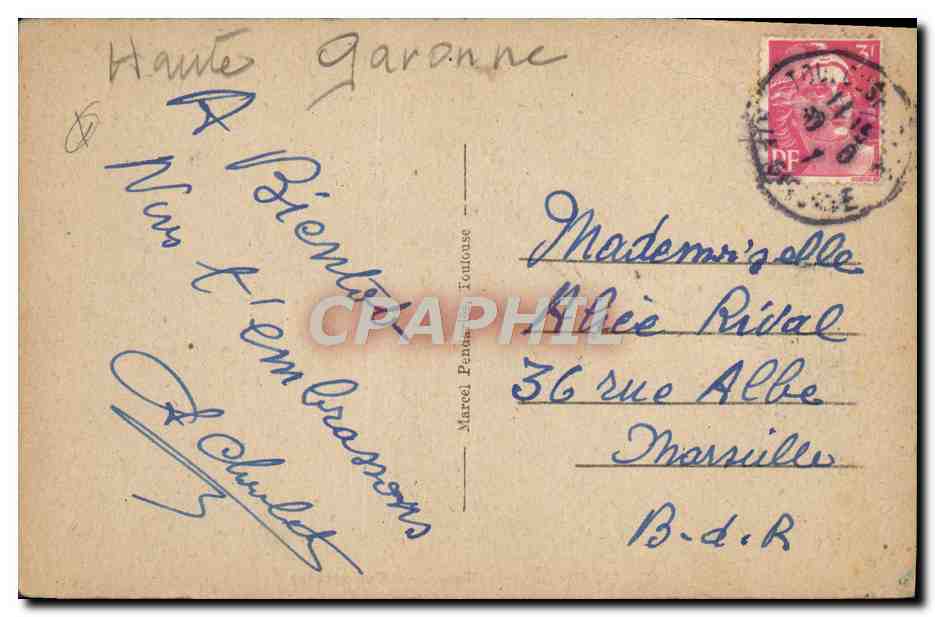 Haute Garonne
A
Bientôt
Nous t'embrassons
Marcel Toulouse
3F
RF
Mademoiselle
Rival
36 rue Albe
Marseille
B-d-R
CPAPHIL